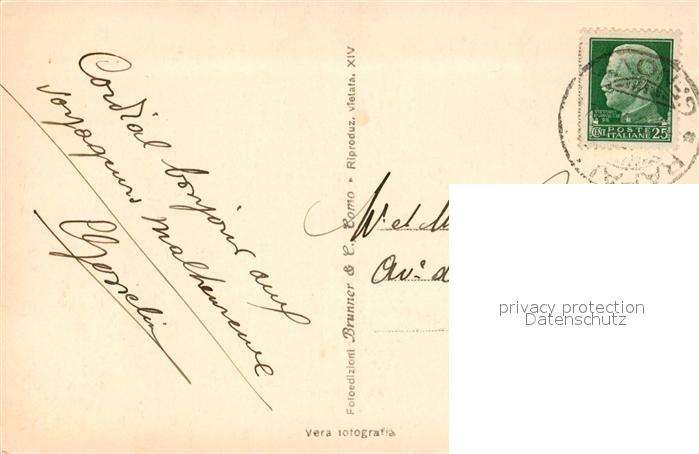 Cordial bonjour aux
voyageurs malheureux
Fotoedizioni Brunner & C. Como • Riproduz. vietata. XIV
Vera fotografia
POSTE
ITALIANE
CENT 25
Mr et M
Av. d
privacy protection
Datenschutz